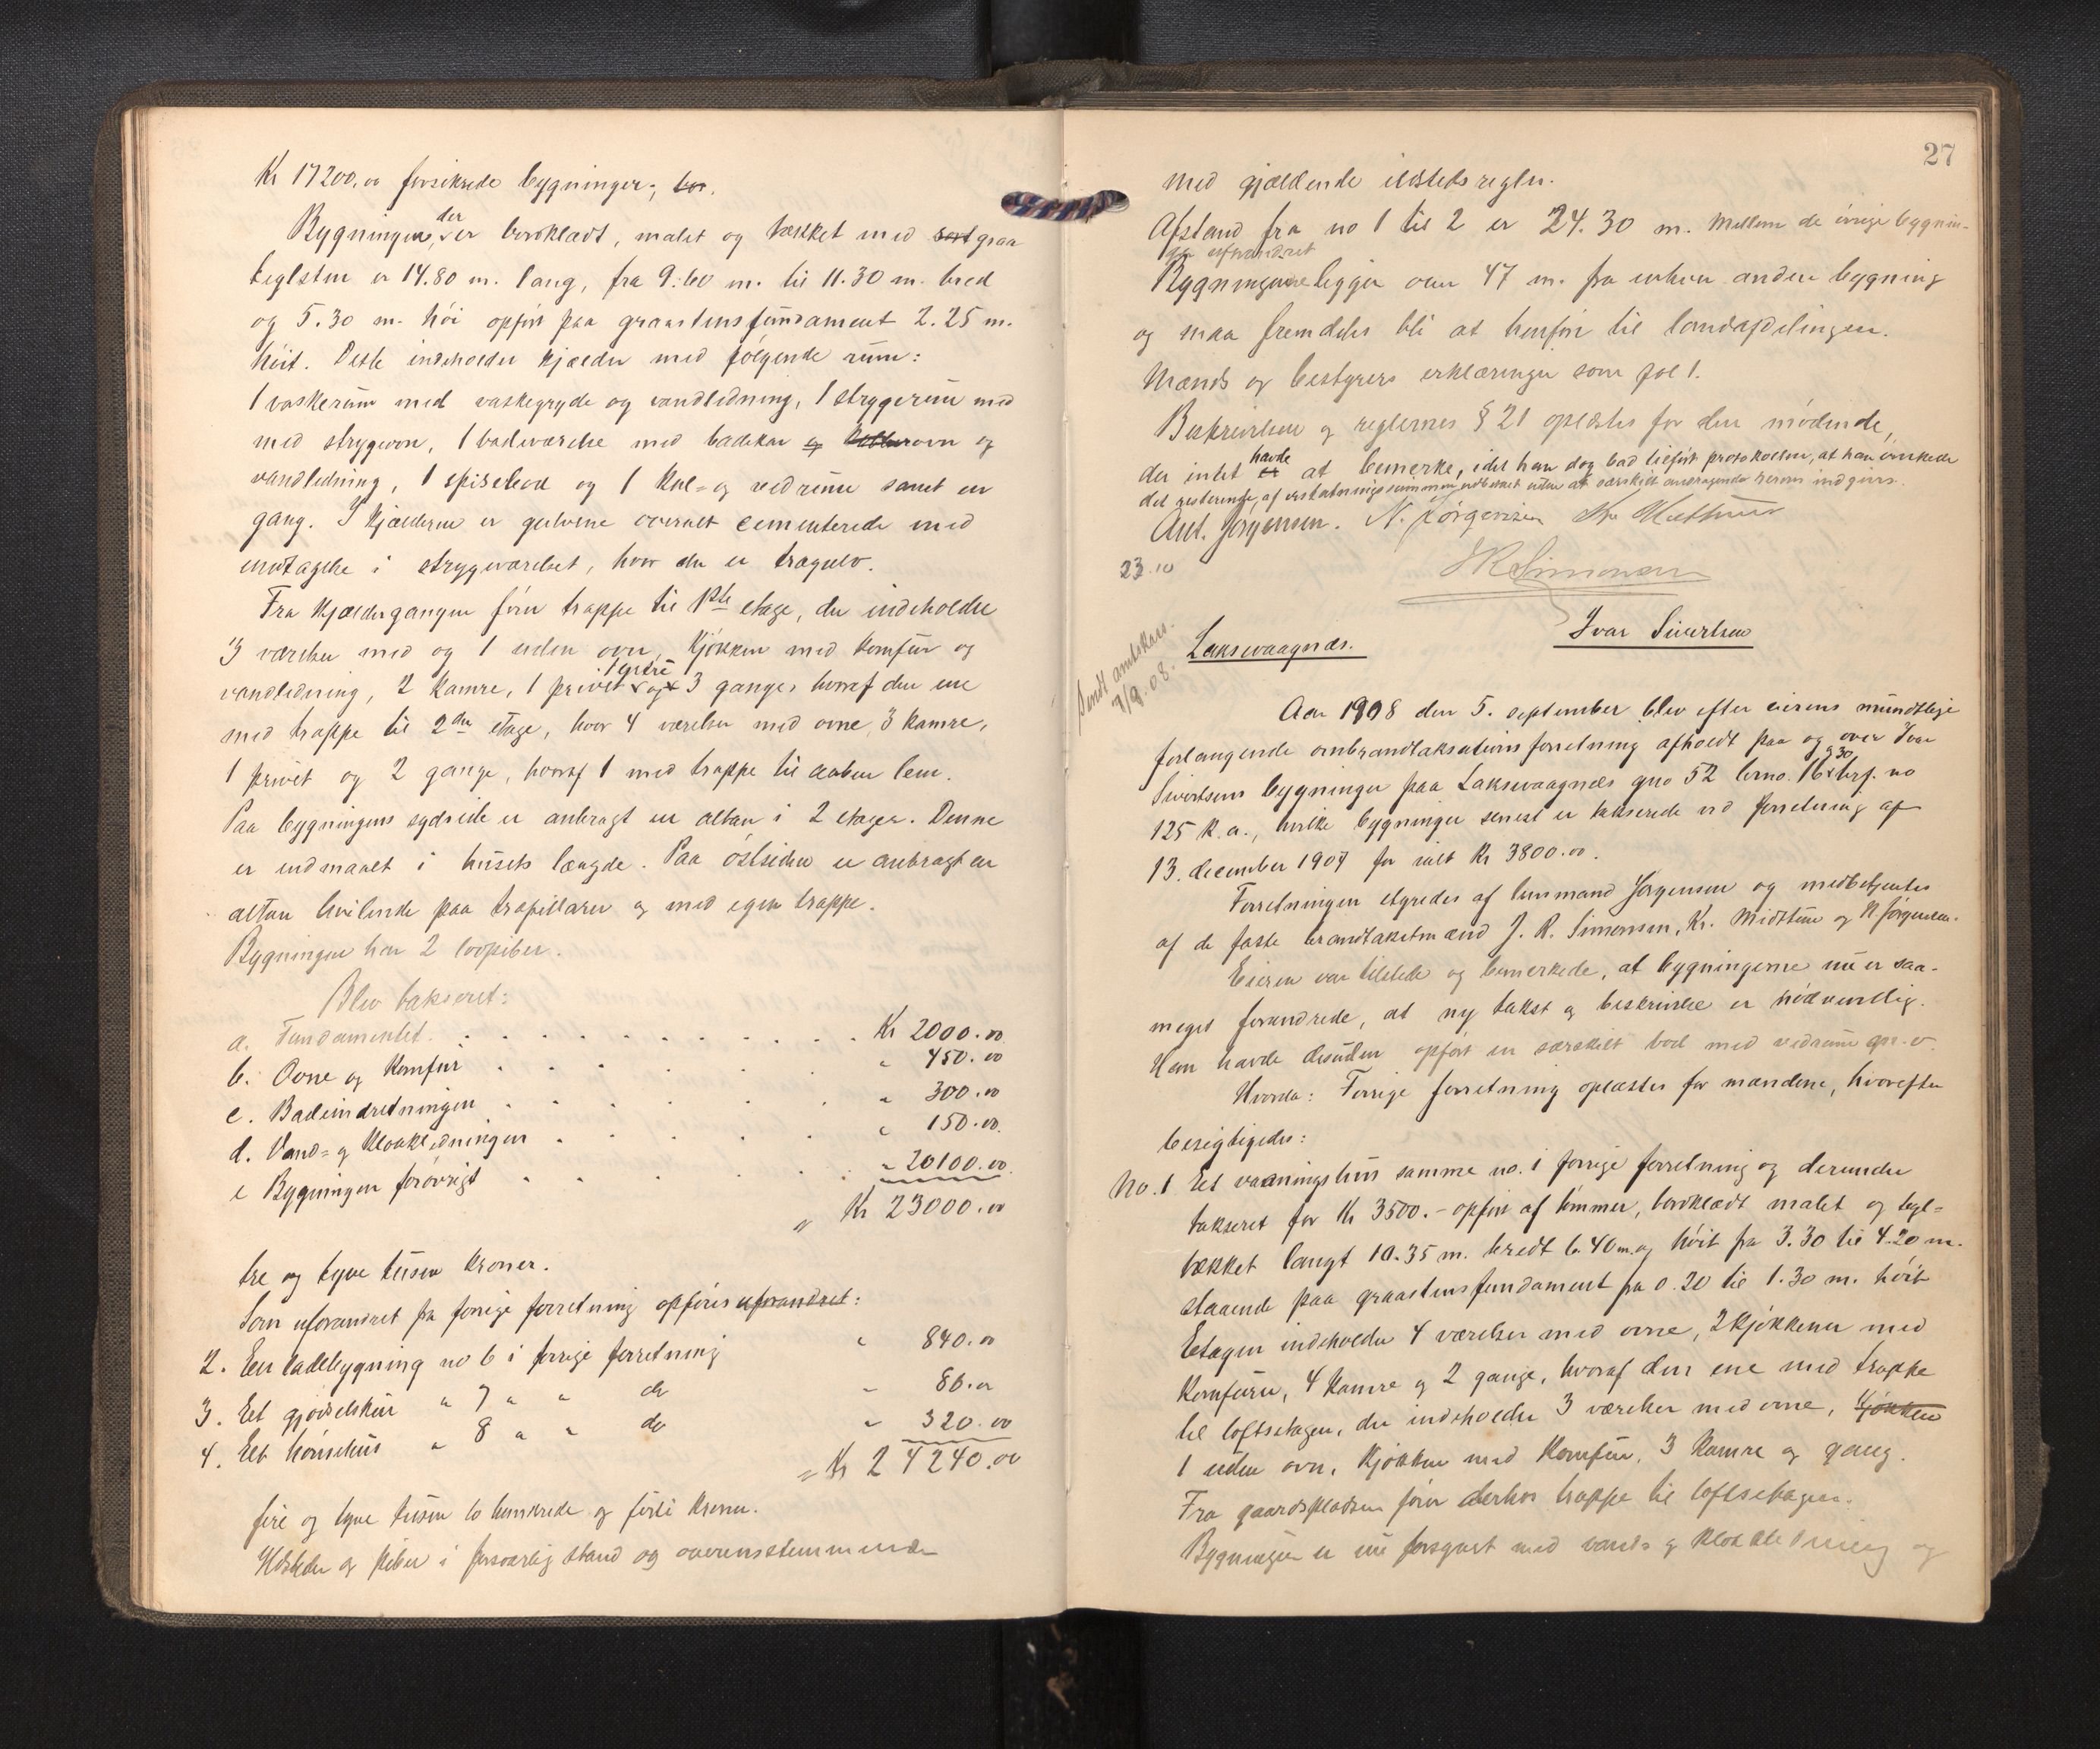 Kr 17200.00 forsikrede bygninger;
Bygningen, der er bordklædt, malet og tækket med sort graa
teglsten er 14.80 m. lang, fra 9.60 m. til 11.30 m. bred
og 5.30 m. høi opført paa graastensfundament 2.25 m.
høit. Dette indeholder kjælder med følgende rum:
1 vaskerum med vaskegryde og vandledning, 1 strygerum med
med strygeovn, 1 badeværelse med badekar og ovn og
vandledning, 1 spisebod og 1 kul- og vedrum samt en
gang. I kjælderen er gulvene overalt cementerede med
undtagelse i strygeværelset, hvor der er trægulv.
Fra kjældergangen fører trappe til 1ste etage, der indeholder
3 værelser med og 1 uden ovn, kjøkken med komfur og
vandledning, 2 kamre, 1 privet, 1 entré og 3 gange, hvoraf den ene
med trappe til 2den etage, hvor 4 værelser med ovne, 3 kamre,
1 privet og 2 gange, hvoraf 1 med trappe til aaben lem.
Paa bygningens sydside er anbragt en altan i 2 etager. Denne
er indmaalt i husets længde. Paa østsiden er anbragt en
altan hvilende paa træpillarer og med egen trappe.
Bygningen har 2 lovpiber.
Blev takseret:
a. Fundamentet . . . . . . . . . . Kr 2000.00
b. Ovne og komfur . . . . . . " 450.00
c. Badeindretningen . . . . . . " 300.00
d. Vand- og kloakledningen . . . . . " 150.00
e Bygningen forøvrigt . . . . . " 20100.00
" Kr 23000.00
tre og tyve tusen kroner.
Som uforandret fra forrige forretning opføres uforandret:
2. En ladebygning no 6 i forrige forretning " 840.00
3. Et gjødselskur " 7 " " do " 80.00
4. Et hønsehus " 8 " " do " 320.00
= Kr 24240.00
fire og tyve tusen to hundrede og førti kroner.
Ildsteder og piber i forsvarlig stand og overensstemmende
27
med gjældende ildstedsregler.
Afstand fra no 1 til 2 er 24.30 m. Mellem de øvrige bygnin-
ger uforandret
Bygningerne ligger over 47 m. fra enhver anden bygning
og maa fremdeles bli at henføre til landafdelingen.
Mænds og bestyrers erklæringer som fol 1.
Beskrivelsen og reglernes § 21 oplæstes for den mødende,
der intet havde at bemerke, idet han dog bad tilført protokollen, at han ønskede
det resterende af erstatningssummen udbetalt uden at særskilt andragende herom indgives.
Ant. Jørgensen. N. Jørgensen Kr. Midttun
JRSimonsen
23.10
Sendt amtskass.
9/9.08.
Laksevaagnæs.
Ivar Sivertsen
Aar 1908 den 5. september blev efter eierens mundtlige
forlangende ombrandtaksationsforretning afholdt paa og over Ivar
Sivertsens bygninger paa Laksevaagnæs gno 52 brno. 16 & 30 brf. no
125 k.a., hvilke bygninger senest er takserede ved forretning af
13. december 1907 for ialt Kr 3800.00.
Forretningen styredes af lensmand Jørgensen og medbetjentes
af de faste brandtakstmænd J. R. Simonsen, Kr. Midttun og N Jørgensen.
Eieren var tilstede og bemerkede, at bygningerne nu er saa-
meget forandrede, at ny takst og beskrivelse er nødvendig.
Han havde desuden opført en særskilt bod med vedrum m. v.
Hvorda: Forrige forretning oplæstes for mændene, hvorefter
besigtigedes:
No. 1 Et vaaningshus samme no. i forrige forretning og derunder
takseret for Kr 3500.- opført af tømmer, bordklædt malet og tegl-
tækket langt 10.35 m. bredt 6.40 m. og høit fra 3.30 til 4.20 m.
staaende paa graastensfundament fra 0.20 til 1.30 m. høit
Etagen indeholder 4 værelser med ovne, 2 kjøkkener med
komfurer, 4 kamre og 2 gange, hvoraf den ene med trappe
til loftsetagen, der indeholder 3 værelser med ovne, kjøkken
1 uden ovn, kjøkken med komfur, 3 kamre og gang.
Fra gaardspladsen fører derhos trappe til loftsetagen.
Bygningen er nu forsynt med vand- og kloakledning og